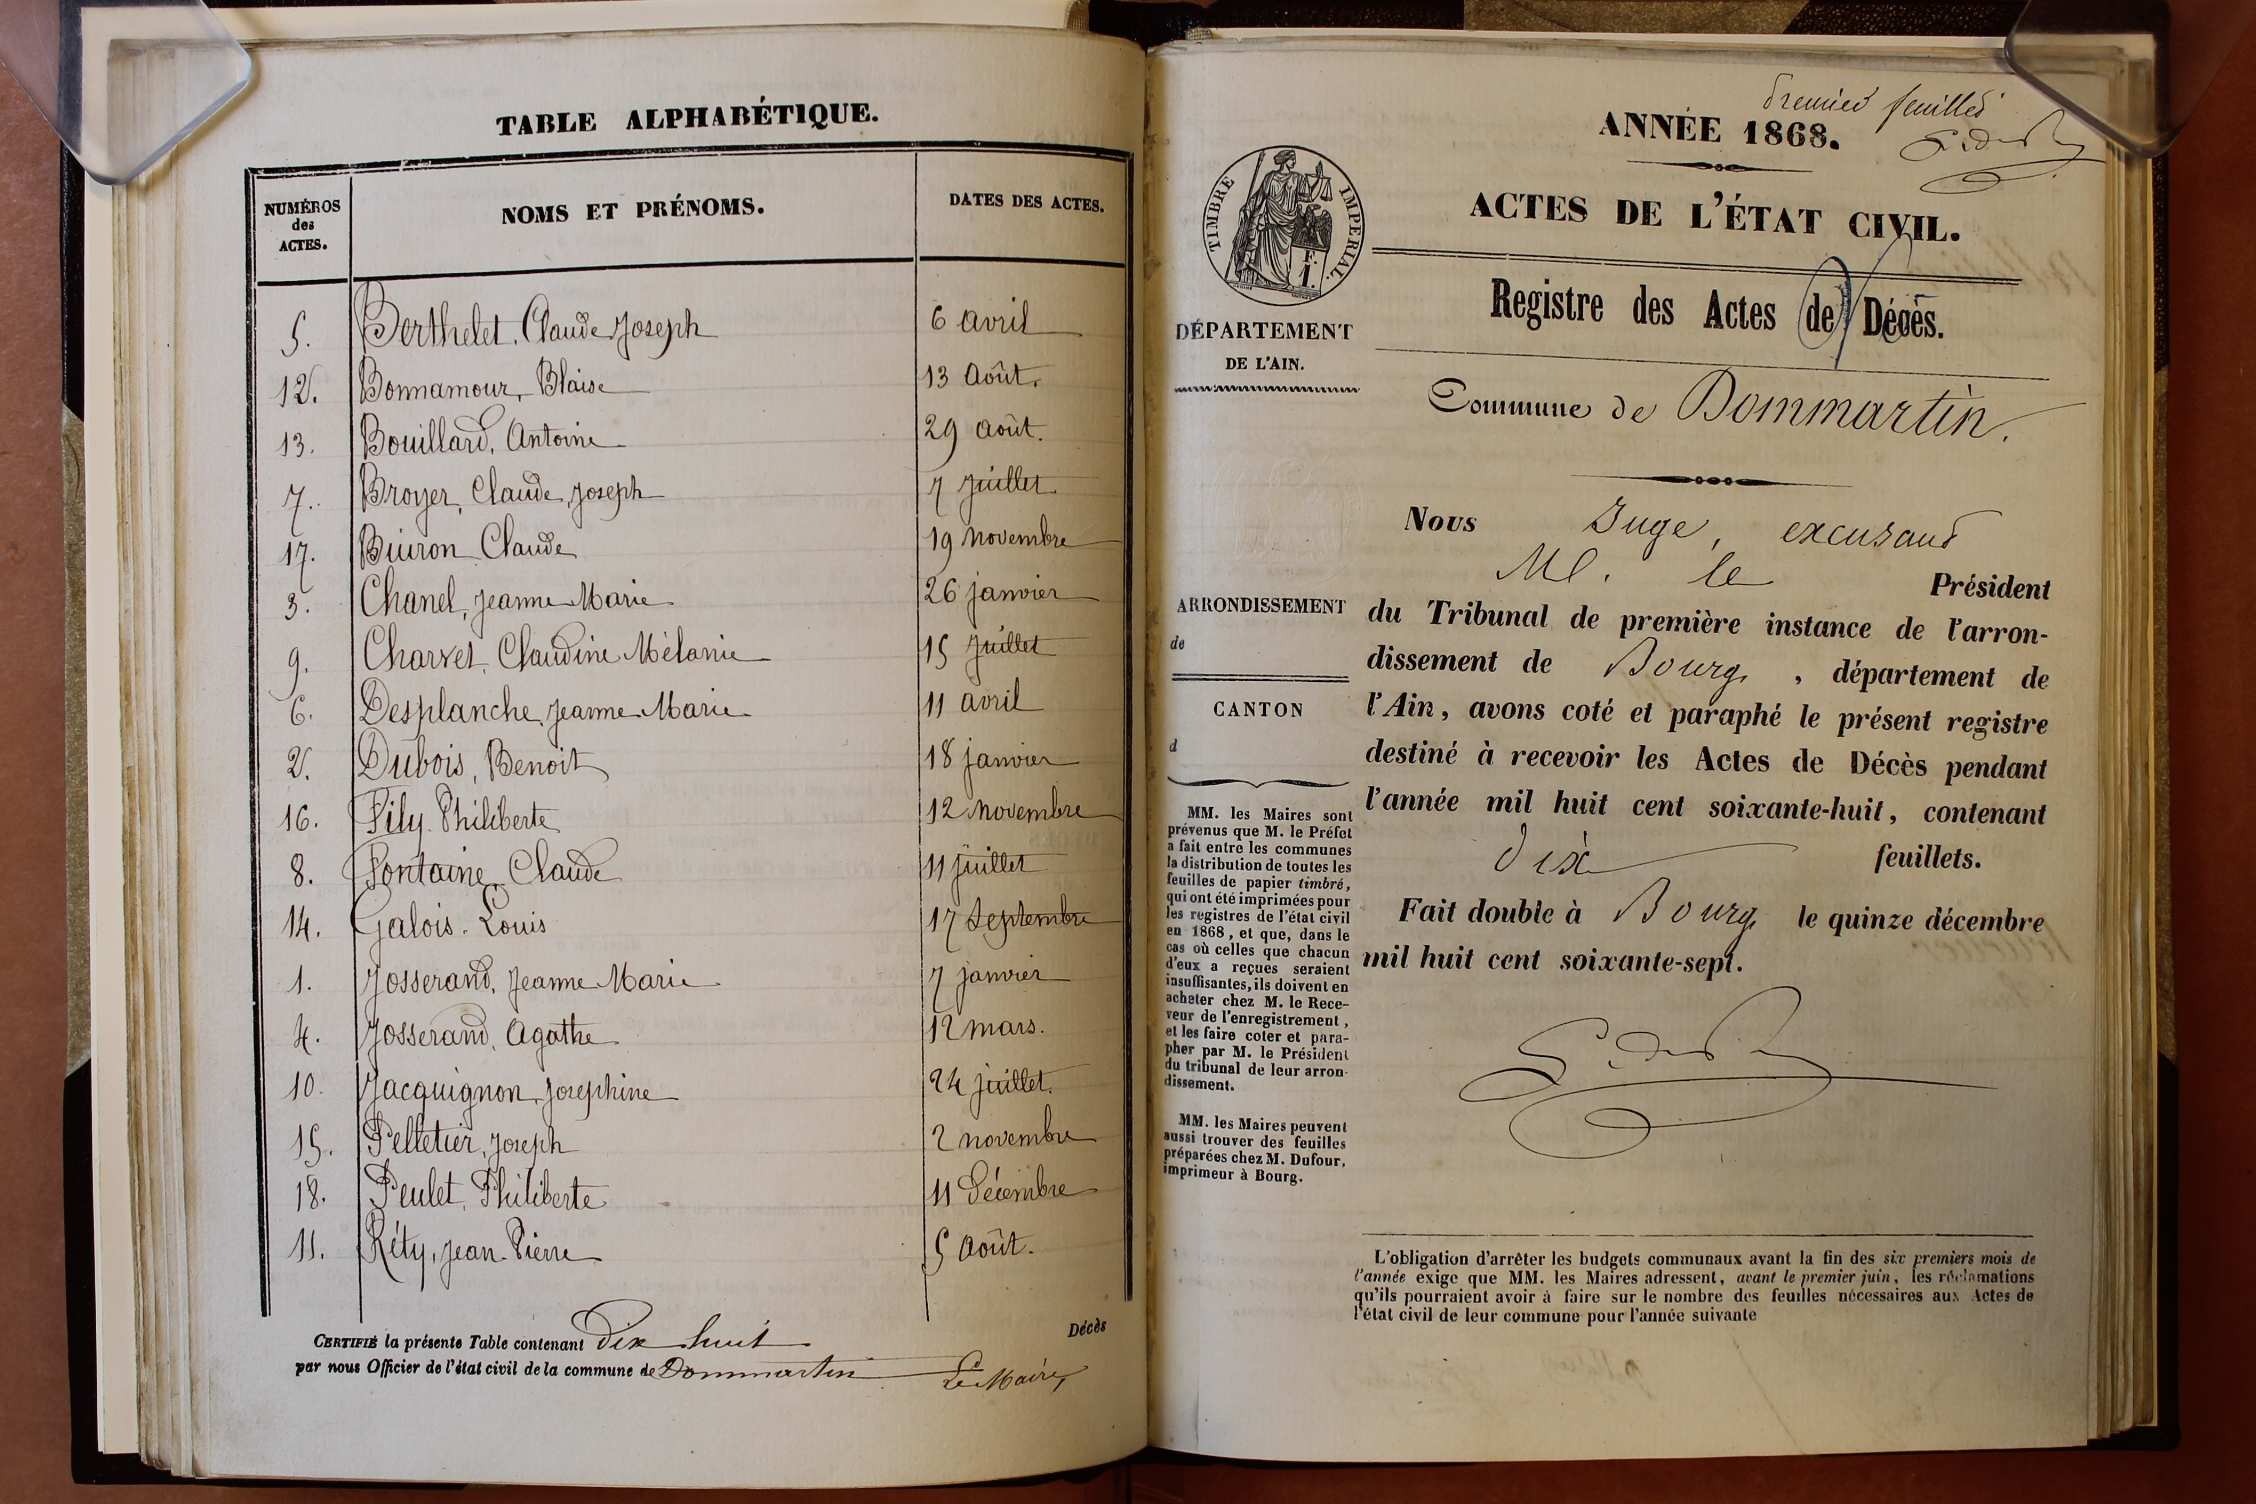 TABLE ALPHABÉTIQUE.
NUMÉROS des ACTES. NOMS ET PRÉNOMS. DATES DES ACTES.
5. Berthelet, Claude Joseph 6 avril
12. Bonnamour, Blaise 13 Août.
13. Bouillard, Antoine 29 août.
7. Broyer, Claude Joseph 7 Juillet
17. Buiron Claude 19 novembre
3. Chanel, Jeanne Marie 26 janvier
9. Charvet, Claudine Mélanie 15 Juillet
6. Desplanche, Jeanne Marie 11 avril
2. Dubois, Benoit 18 janvier
16. Fily Philiberte 12 novembre
8. Fontaine, Claude 11 juillet
14. Galois. Louis 17 Septembre
1. Josserand, Jeanne Marie 7 janvier
4. Josserand, Agathe 12 mars.
10. Jacquignon, Josephine 24 juillet.
15. Pelletier, Joseph 2 novembre
18. Peulet, Philiberte 11 Décembre
11. Réty, Jean-Pierre 5 Août.
CERTIFIÉ la présente Table contenant Dix huit Décès
par nous Officier de l'état civil de la commune de Dommartin
Le Maire,
Premier feuillet
ANNÉE 1868.
ACTES DE L'ÉTAT CIVIL.
TIMBRE IMPÉRIAL.
F. 1.
Registre des Actes de Décès.
DÉPARTEMENT
DE L'AIN.
Commune de Dommartin.
Nous Juge, excusant
M. le Président
ARRONDISSEMENT
de
CANTON
d
du Tribunal de première instance de l'arron-
dissement de Bourg, département de
l'Ain, avons coté et paraphé le présent registre
destiné à recevoir les Actes de Décès pendant
l'année mil huit cent soixante-huit, contenant
dix feuillets.
Fait double à Bourg le quinze décembre
mil huit cent soixante-sept.
MM. les Maires sont
prévenus que M. le Préfet
a fait entre les communes
la distribution de toutes les
feuilles de papier timbré,
qui ont été imprimées pour
les registres de l'état civil
en 1868, et que, dans le
cas où celles que chacun
d'eux a reçues seraient
insuffisantes, ils doivent en
acheter chez M. le Rece-
veur de l'enregistrement,
et les faire coter et para-
pher par M. le Président
du tribunal de leur arron-
dissement.
MM. les Maires peuvent
aussi trouver des feuilles
préparées chez M. Dufour,
imprimeur à Bourg.
L'obligation d'arrêter les budgets communaux avant la fin des six premiers mois de
l'année exige que MM. les Maires adressent, avant le premier juin, les réclamations
qu'ils pourraient avoir à faire sur le nombre des feuilles nécessaires aux Actes de
l'état civil de leur commune pour l'année suivante